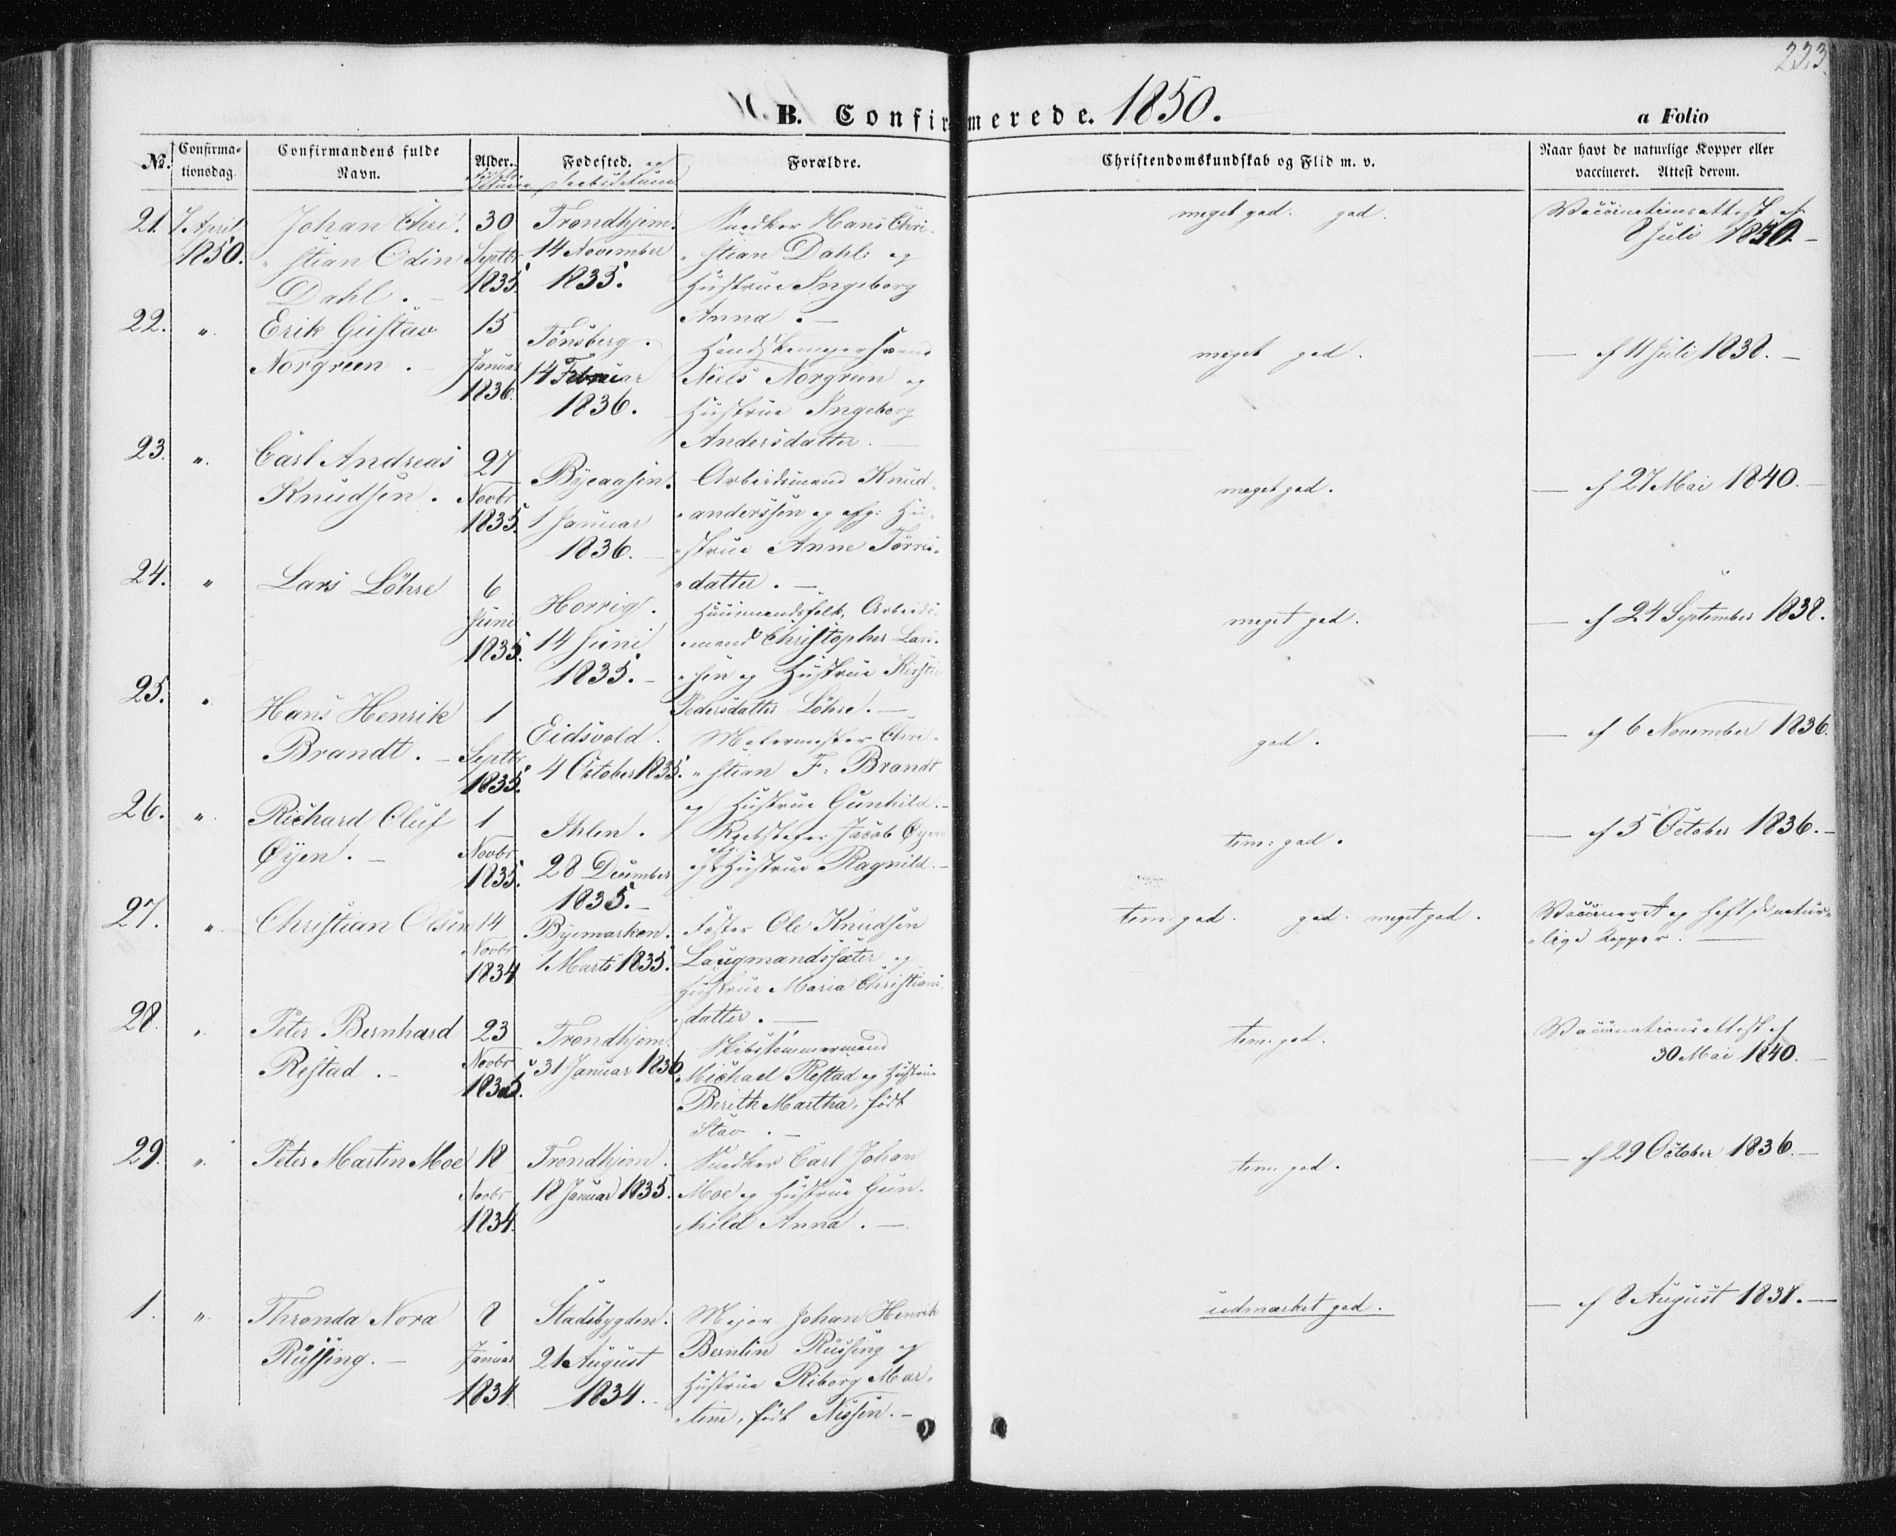 223.
B. Confirmerede. 1850.
a Folio
No.
Confirmationsdag.
Confirmandens fulde Navn.
Alder.
Fødested. og
Forældre.
Christendomskundskab og Flid m. v.
Naar havt de naturlige Kopper eller vaccineret. Attest derom.
21. 7 April 1850.
Johan Chri-
stian Odin
Dahl.
30 Septbr 1835.
Trondhjem.
14 November
1835.
Snedker Hans Chri-
stian Dahl og
Hustrue Ingeborg
Anna.
meget god. god.
Vaccinationsattest af
8 Juli 1850.
22. "
Erik Gustav
Norgreen.
15 Januar 1836.
Tønsberg.
14 Februar
1836.
Handskemagersvend
Niels Norgreen og
Hustrue Ingeborg
Andersdatter.
meget god.
— af 11 Juli 1838.
23. "
Carl Andreas
Knudsen.
27 Novbr 1835.
Byeaasen.
1 Januar
1836.
Arbeidsmand Knud
Anderssen og afg: Hu-
strue Anne Tørris-
datter.
meget god.
— af 27 Mai 1840.
24. "
Lars Löhre
6 Juni 1835.
Horrig.
14 Juni
1835.
Huusmandsfolk, Arbeids-
mand Christopher Lars-
sen og Hustrue Kirsti
Pedersdatter Löhre.
meget god.
— af 24 September 1838.
25. "
Hans Henrik
Brandt.
1 Septbr 1835.
Eidsvold.
4 October 1835.
Malermester Chri-
stian F. Brandt
og Hustrue Gunhild.
god.
— af 6 November 1836.
26. "
Richard Oluf
Øyen.
1 Novbr 1835.
Ihlen.
28 December
1835.
Rebslager Jacob Øyen
og Hustrue Ragnild.
tem: god.
— af 5 October 1836.
27. "
Christian Olsen
14 Novbr 1834
Byemarken.
1 Marts 1835.
Foster Ole Knudsen
Laugmandssæter og
Hustrue Maria Christians-
datter.
tem: god. god. meget god.
Vaccineret og haft de natur-
lige Kopper.
28. "
Peter Bernhard
Restad.
23 Novbr 1835.
Trondhjem.
31 Januar 1836
Skibstømmermand
Michael Restad og Hustrue
Berith Martha, født
Stav.
tem: god.
Vaccinationsattest af
30 Mai 1840.
29. "
Peter Martin Moe
18 Novbr 1834.
Trondhjem.
18 Januar 1835.
Snedker Carl Johan
Moe og Hustrue Gun-
hild Anna.
tem: god.
— af 29 October 1836.
1. "
Thronda Nora
Rüssing.
8 Januar 1834.
Stadsbygden.
21 August
1834.
Major Johan Henrik
Berntin Rüssing og
Hustrue Riborg Mar-
tine, født Nissen.
udmærket god.
— af 8 August 1838.